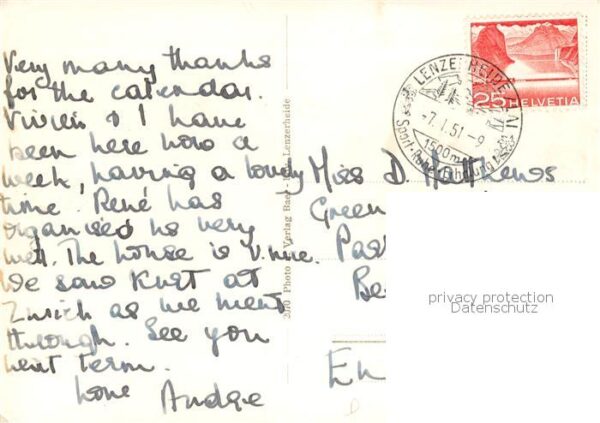 Very many thanks
for the calendar.
Vivien & I have
been here now a
week, having a lovely
time. René has
organised us very
well. The house is v. nice.
We saw Kurt at
Zurich as we went
through. See you
next term.
love Andrée
Miss D. Matthews
Green
Pas
Be
En
25 HELVETIA
LENZERHEIDE
-7.1.51-9
1500m
Sport
2010 Photo Verlag Baer Lenzerheide
privacy protection
Datenschutz